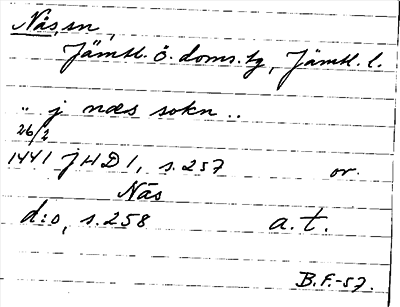 Näs, sn,
Jämtl. ö. doms.tg, Jämtl. l.
.. j næs sokn ..
26/2
1441 JHD 1, s. 257 or.
Näs
d:o, s. 258 a.t.
B.F.-57.